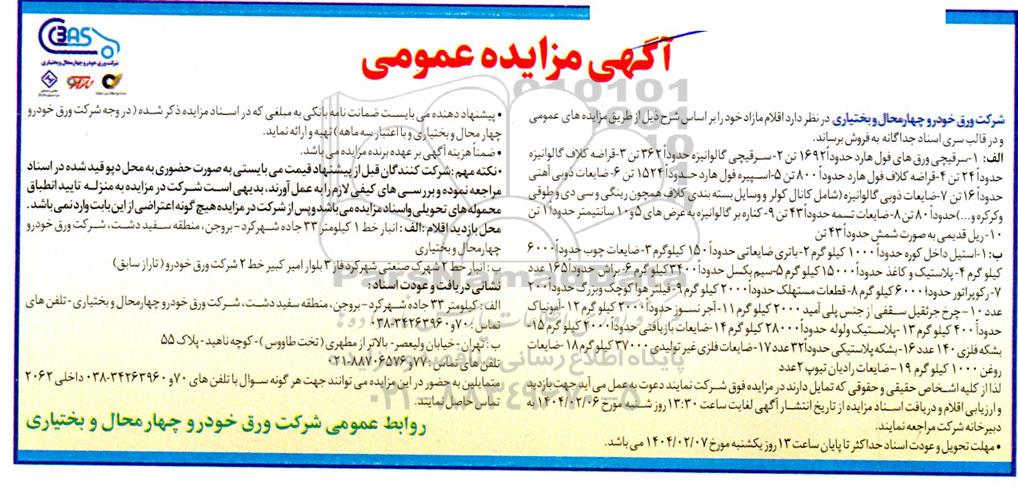 آگهی مزایده عمومی
CBAS
شرکت ورق خودرو چهارمحال و بختیاری
شرکت ورق خودرو چهارمحال و بختیاری در نظر دارد اقلام مازاد خود را بر اساس شرح ذیل از طریق مزایده های عمومی
و در قالب سری اسناد جداگانه به فروش برساند.
الف: ۱-سرقیچی ورق های فول هارد حدوداً ۱۶۹۲ تن ۲-سرقیچی گالوانیزه حدوداً ۳۶۲ تن ۳-قراضه کلاف گالوانیزه
حدوداً ۲۴ تن ۴-قراضه کلاف فول هارد حدوداً ۸۰۰ تن ۵-اسپیره فول هارد حدوداً ۱۵۲۴ تن ۶-ضایعات ذوبی آهنی
حدوداً ۱۶ تن ۷-ضایعات ذوبی گالوانیزه (شامل کانال کولر و وسایل بسته بندی کلاف همچون رینگی و سی دی و طوقی
و کرکره و...) حدوداً ۸۰ تن ۸-ضایعات تسمه حدوداً ۴۳ تن ۹-کناره بر گالوانیزه به عرض های ۵ و ۱۰ سانتیمتر حدوداً ۱ تن
۱۰-ریل قدیمی به صورت شمش حدوداً ۴۳ تن
ب: ۱-استیل داخل کوره حدوداً ۱۰۰۰ کیلو گرم ۲-باتری ضایعاتی حدوداً ۱۵۰ کیلوگرم ۳-ضایعات چوب حدوداً ۶۰۰۰
کیلو گرم ۴-پلاستیک و کاغذ حدوداً ۱۵۰۰۰ کیلو گرم ۵-سیم بکسل حدوداً ۳۴۰۰ کیلو گرم ۶-براش حدوداً ۱۶۵ عدد
۷-رکوپراتور حدوداً ۶۰۰۰ کیلو گرم ۸-قطعات مستهلک حدوداً ۲۰۰۰ کیلو گرم ۹-فیلتر هوا کوچک و بزرگ حدوداً ۲۰۰
عدد ۱۰-چرخ جرثقیل سقفی از جنس پلی آمید ۲۰۰۰ کیلو گرم ۱۱-آجر نسوز حدوداً ۳۰۰۰ کیلو گرم ۱۲-آمونیاک
حدوداً ۴۰۰ کیلو گرم ۱۳-پلاستیک و لوله حدوداً ۲۸۰۰۰ کیلو گرم ۱۴-ضایعات بازیافتی حدوداً ۲۰۰۰ کیلو گرم ۱۵-
بشکه فلزی ۱۴۰ عدد ۱۶-بشکه پلاستیکی حدوداً ۳۲ عدد ۱۷-ضایعات فلزی غیر تولیدی ۳۷۰۰۰ کیلو گرم ۱۸-ضایعات
روغن ۱۰۰۰ کیلو گرم ۱۹-ضایعات رادیان تیوپ ۲ عدد
لذا از کلیه اشخاص حقیقی و حقوقی که تمایل دارند در مزایده فوق شرکت نمایند دعوت به عمل می آید جهت بازدید
و ارزیابی اقلام و دریافت اسناد مزایده از تاریخ انتشار آگهی لغایت ساعت ۱۳:۳۰ روز شنبه مورخ ۱۴۰۴/۰۲/۰۶ به
دبیرخانه شرکت مراجعه نمایند.
• مهلت تحویل و عودت اسناد حداکثر تا پایان ساعت ۱۳ روز یکشنبه مورخ ۱۴۰۴/۰۲/۰۷ می باشد.
• پیشنهاد دهنده می بایست ضمانت نامه بانکی به مبلغی که در اسناد مزایده ذکر شده (در وجه شرکت ورق خودرو
چهار محال و بختیاری و با اعتبار سه ماهه) تهیه و ارائه نماید.
• ضمناً هزینه آگهی بر عهده برنده مزایده می باشد.
• نکته مهم: شرکت کنندگان قبل از پیشنهاد قیمت می بایستی به صورت حضوری به محل دپو قید شده در اسناد
مراجعه نموده و بررسی های کیفی لازم را به عمل آورند. بدیهی است شرکت در مزایده به منزله تایید انطباق
محموله های تحویلی و اسناد مزایده می باشد و پس از شرکت در مزایده هیچ گونه اعتراضی از این بابت وارد نمی باشد.
محل بازدید اقلام: الف: انبار خط ۱ کیلومتر ۳۳ جاده شهرکرد-بروجن، منطقه سفید دشت، شرکت ورق خودرو
چهارمحال و بختیاری
ب: انبار خط ۲ شهرک صنعتی شهرکرد فاز ۳ بلوار امیر کبیر خط ۲ شرکت ورق خودرو (تاراز سابق)
نشانی دریافت و عودت اسناد:
الف: کیلومتر ۳۳ جاده شهرکرد-بروجن، منطقه سفید دشت، شرکت ورق خودرو چهارمحال و بختیاری-تلفن های
تماس: ۷۰ و ۳۴۲۶۳۹۶۰-۰۳۸
ب: تهران-خیابان ولیعصر-بالاتر از مطهری (تخت طاووس)-کوچه ناهید-پلاک ۵۵
تلفن های تماس: ۷۷ و ۸۸۷۰۶۵۷۶-۰۲۱
متقاضیان به حضور در این مزایده می توانند جهت هر گونه سوال با تلفن های ۷۰ و ۳۴۲۶۳۹۶۰-۰۳۸ داخلی ۲۰۶۲
تماس حاصل نمایند.
روابط عمومی شرکت ورق خودرو چهارمحال و بختیاری
ParsNamadData
پایگاه اطلاع رسانی مناقصه و مزایده
۰۲۱-۸۸۳۴۹۶۷۰-۵